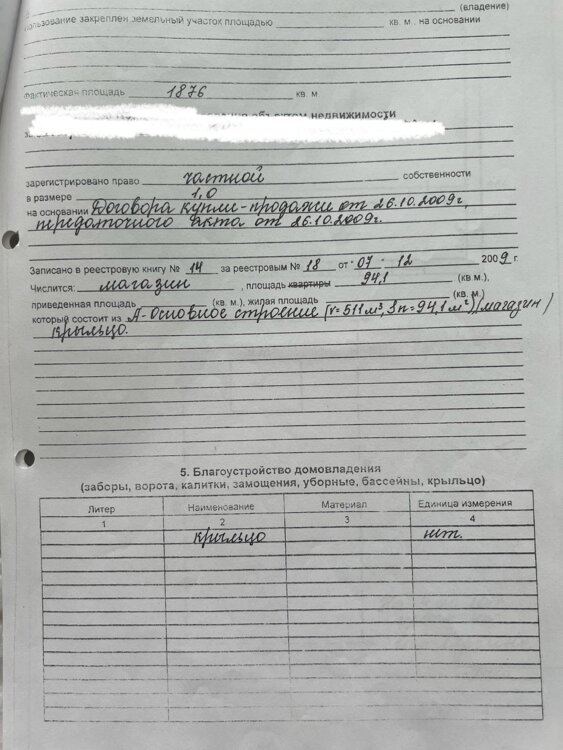 (владение)
пользование закреплен земельный участок площадью кв. м., на основании
фактическая площадь 1876 кв. м
объектом недвижимости
зарегистрировано право частной собственности
в размере 1,0
на основании Договора купли-продажи от 26.10.2009г,
передаточного акта от 26.10.2009г.
Записано в реестровую книгу № 14 за реестровым № 18 от "07 - 12 2009 г.
Числится: магазин , площадь квартиры 94,1 (кв м.),
приведенная площадь (кв. м.), жилая площадь (кв. м.)
который состоит из А-Основное строение (v=511м³, Sп=94,1м²)(магазин)
крыльцо.
5. Благоустройство домовладения
(заборы, ворота, калитки, замощения, уборные, бассейны, крыльцо)
Литер Наименование Материал Единица измерения
1 2 3 4
крыльцо шт.